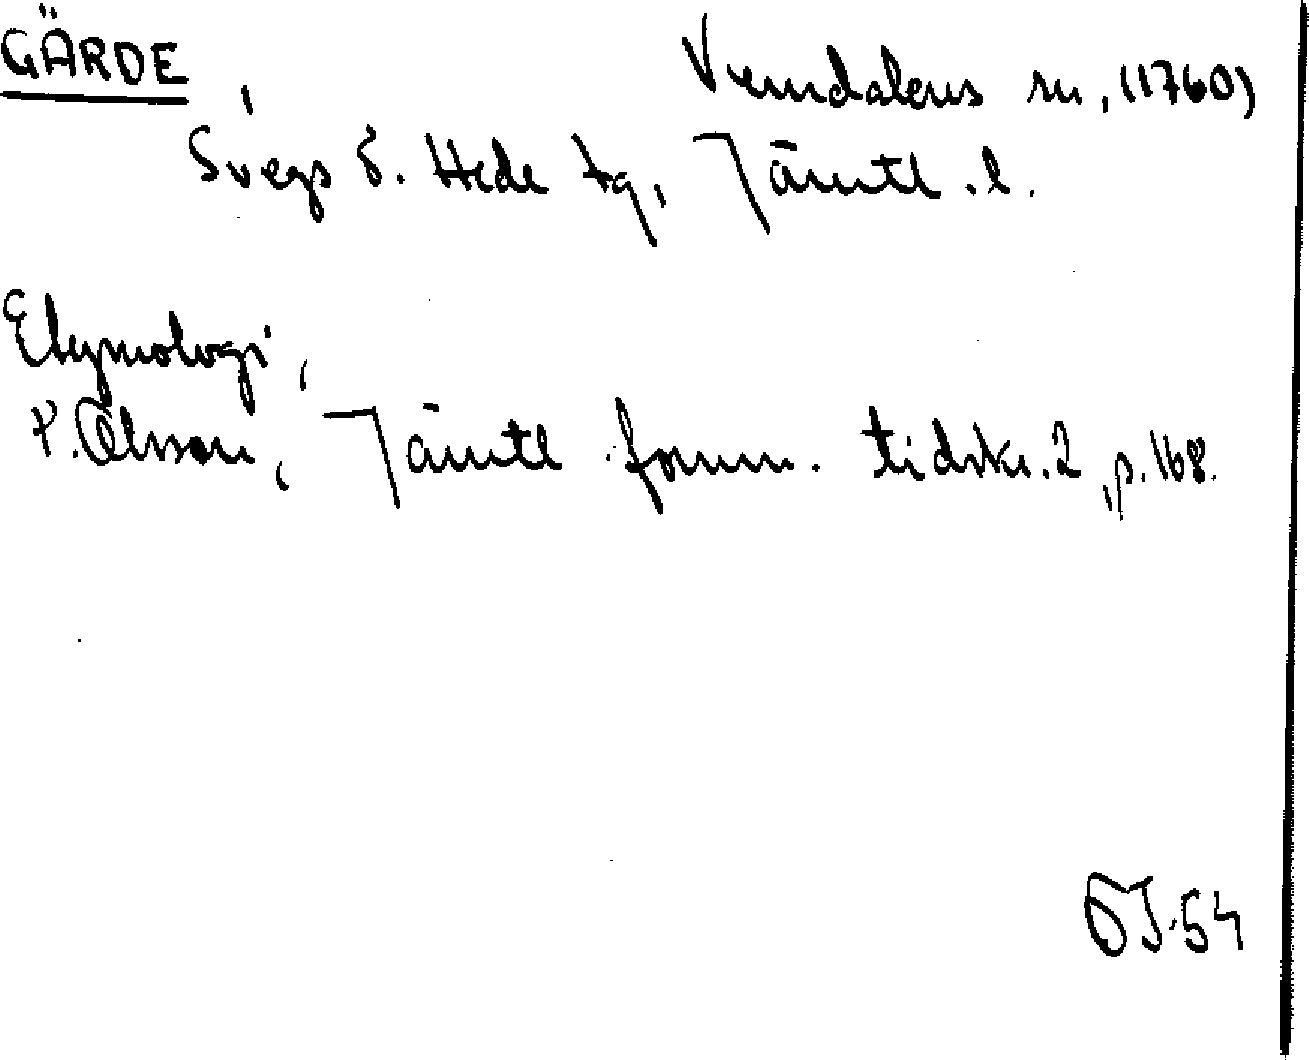 GÄRDE
Vemdalens sn, (1760)
Svegs o. Hede tg, Jämtl. l.
Etymologi,
P. Olsson, Jämtl. fornm. tidskr. 2, p. 168.